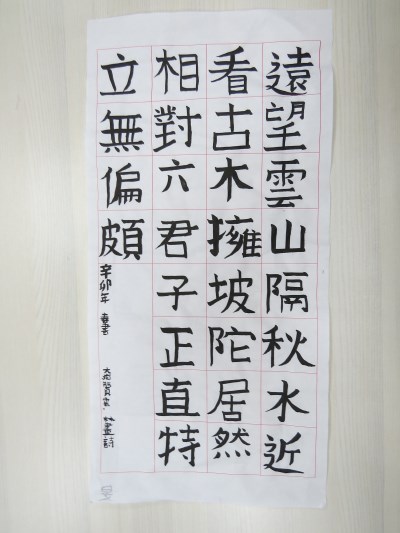 遠望雲山隔秋水近
看古木擁坡陀居然
相對六君子正直特
立無偏頗
辛卯年